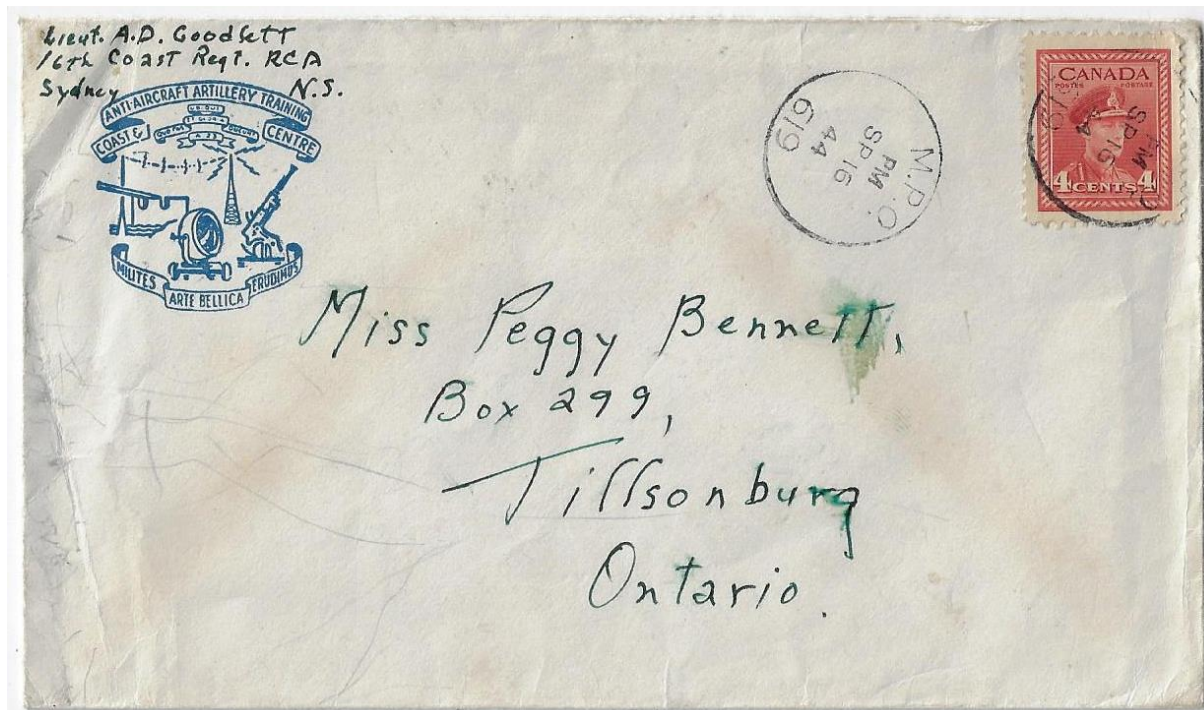 Lieut. A.D. Goodlett
16th Coast Regt. RCA
Sydney N.S.
ANTI-AIRCRAFT ARTILLERY TRAINING
COAST & CENTRE
MILITES ARTE BELLICA ERUDIMUS
M.P.O.
PM
SP 16
44
619
CANADA
POSTES POSTAGE
PM
SP 16
44
619
4 CENTS 4
Miss Peggy Bennett,
Box 299,
Tillsonburg
Ontario.